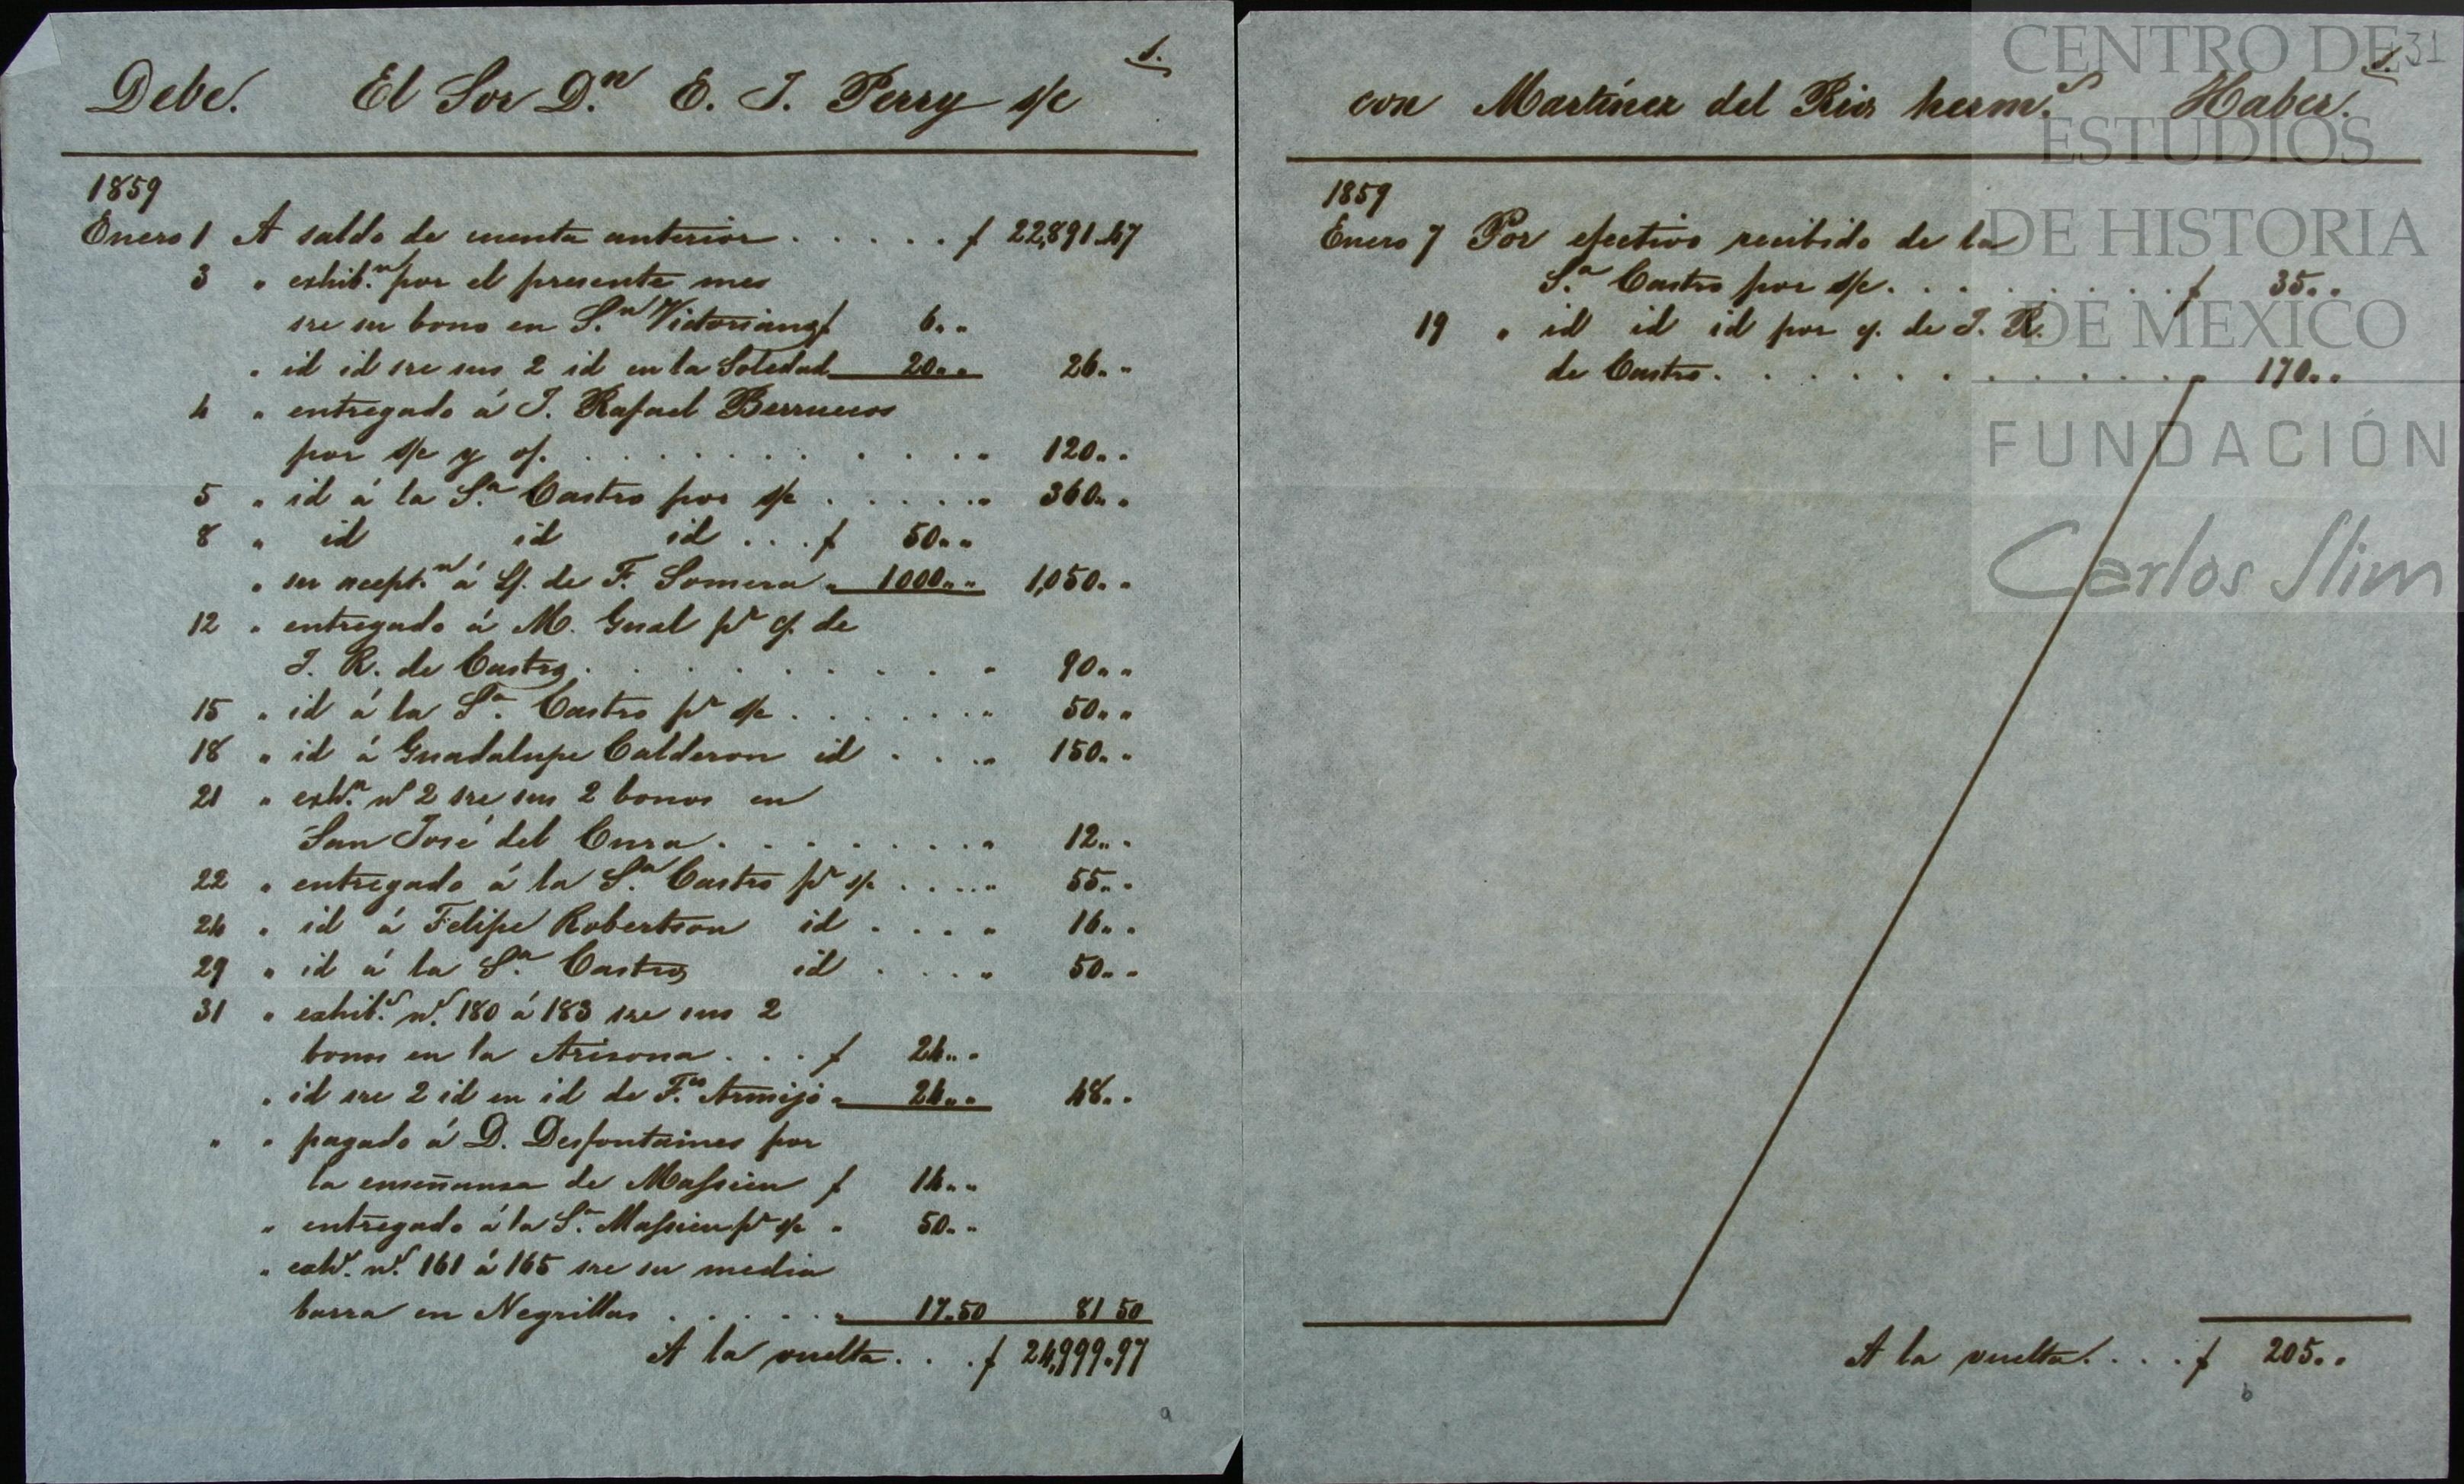 1.
Debe. El Sor D.n E. J. Perry s/c
1859
Enero 1 A saldo de cuenta anterior . . . . . . $ 22,891.47
3 " exhib.n por el presente mes
sre su bono en S.n Victoriano $ 6 " "
" id id sre sus 2 id en la Soledad 20 " " 26 " "
4 " entregado á J. Rafael Berruecos
por s/c y o/. . . . . . . . . . . . " 120 " "
5 " id á la S.a Castro por s/c . . . . . . " 360 " "
8 " id id id . . . $ 50 " "
" su acept.n á L/. de F. Somera " 1000 " " 1,050 " "
12 " entregado á M. Gual p.r c/. de
J. R. de Castro . . . . . . . . . . " 90 " "
15 " id á la S.a Castro p.r s/c . . . . . . " 50 " "
18 " id á Guadalupe Calderon id . . . " 150 " "
21 " exh.n n.o 2 sre sus 2 bonos en
San José del Cura . . . . . . . . " 12 " "
22 " entregado á la S.a Castro p.r s/c . . . . " 55 " "
24 " id á Felipe Robertson id . . . . " 16 " "
29 " id á la S.a Castro id . . . . " 50 " "
31 " exhib.s n.s 180 á 183 sre sus 2
bonos en la Arizona . . . $ 24 " "
" id sre 2 id en id de F.co Armijo " 24 " " 48 " "
" " pagado á D. Desfontaines por
la enseñanza de Massieu $ 14 " "
" entregado á la S.a Massieu p.r s/c " 50 " "
" exh.s n.s 161 á 165 sre su media
barra en Negrillas . . . . . . " 17.50 81 50
A la vuelta . . . $ 24,999.97
a
1. 31
con Martínez del Rio herm.s Haber.
1859
Enero 7 Por efectivo recibido de la
S.a Castro por s/c . . . . . . . . . $ 35 " "
19 " id id id por c/. de J. R.
de Castro . . . . . . . . . . . " 170 " "
A la vuelta . . . . $ 205 " "
b
CENTRO DE
ESTUDIOS
DE HISTORIA
DE MEXICO
FUNDACIÓN
Carlos Slim